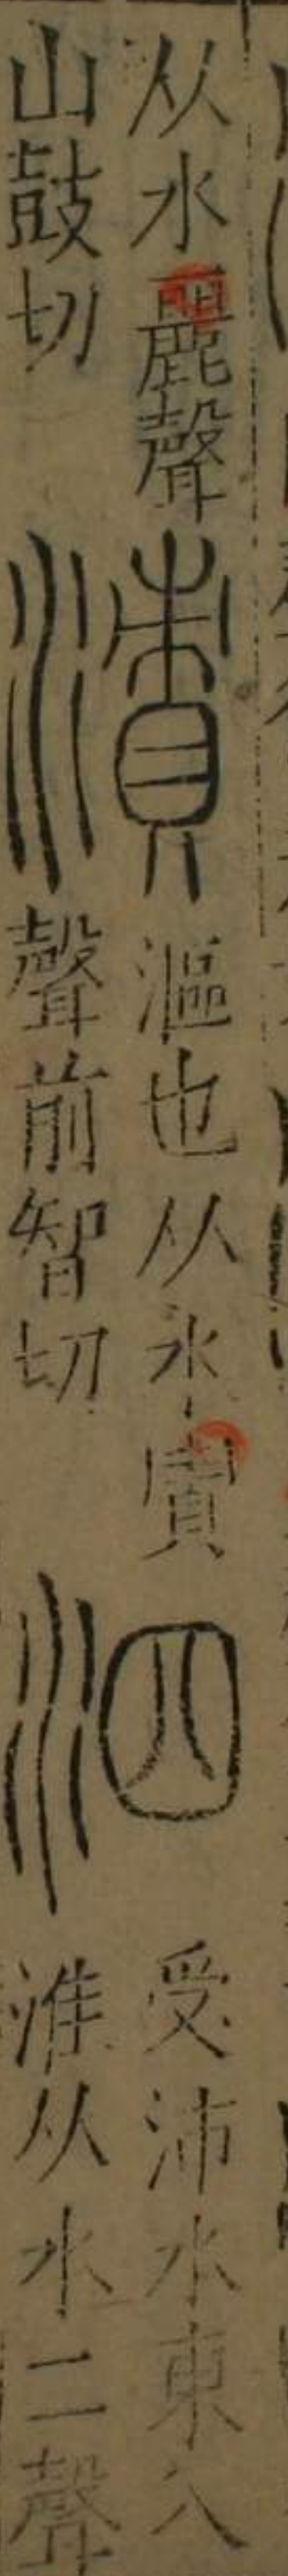 从水麗聲
山鼓切
漬
漚也从水
聲前智切
泗
受沛水東入
淮从水二聲